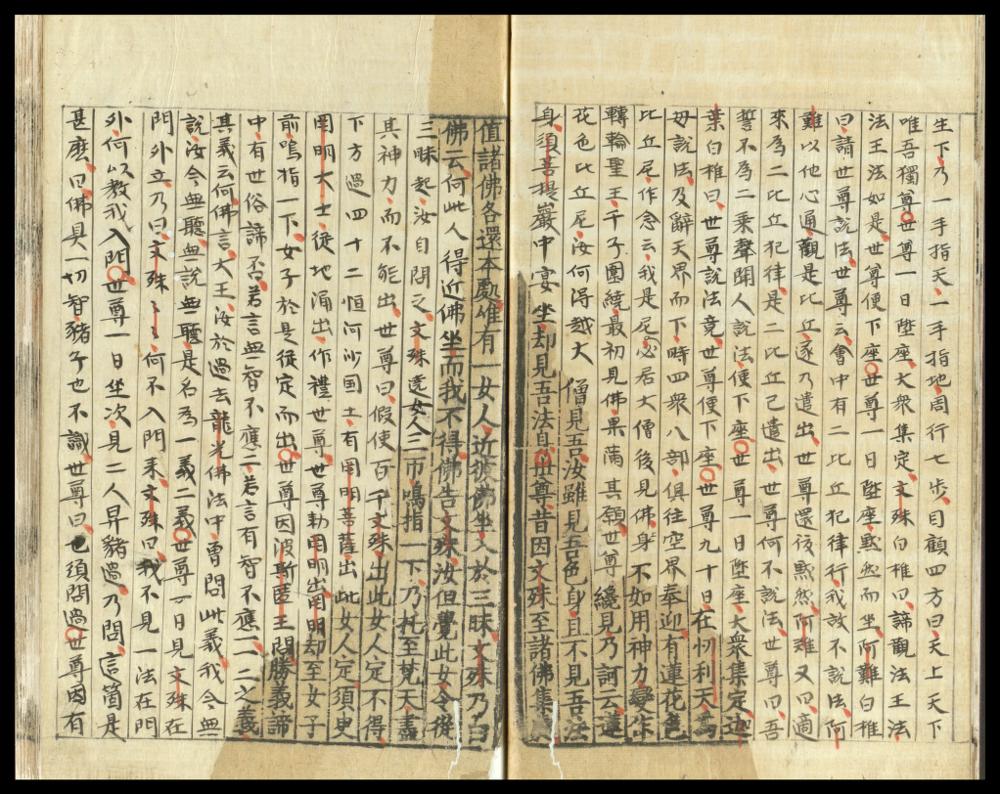 生下乃一手指天一手指地周行七步目顧四方曰天上天下
唯吾獨尊世尊一日陞座大衆集定文殊白椎曰諦觀法王法
法王法如是世尊便下座世尊一日陞座默然而坐阿難白椎
曰請世尊說法世尊云會中有二比丘犯律行我故不說法阿
難以他心通觀是比丘遂乃遣出世尊還復默然阿難又曰適
來為二比丘犯律是二比丘已遣出世尊何不說法世尊曰吾
誓不為二乘聲聞人說法便下座世尊一日陞座大衆集定迦
葉白椎曰世尊說法竟世尊便下座世尊九十日在忉利天為
母說法及辭天界而下時四衆八部俱往空界奉迎有蓮花色
比丘尼作念云我是尼心居大僧後見佛身不如用神力變作
轉輪聖王千子圍繞最初見佛果滿其願世尊纔見乃訶云蓮
花色比丘尼汝何得越大僧見吾汝雖見吾色身且不見吾法
身須菩提巖中宴坐却見吾法身世尊昔因文殊至諸佛集處
值諸佛各還本處唯有一女人近彼佛坐入於三昧文殊乃白
佛云何此人得近佛坐而我不得佛告文殊汝但覺此女令從
三昧起汝自問之文殊遶女人三帀鳴指一下乃托至梵天盡
其神力而不能出世尊曰假使百千文殊出此女人定不得
下方過四十二恒河沙国土有罔明菩薩出此女人定須臾
罔明大士從地涌出作禮世尊世尊勑罔明出罔明却至女子
前鳴指一下女子於是從定而出世尊因波斯匿王問勝義諦
中有世俗諦否若言無智不應二若言有智不應一一二之義
其義云何佛言大王汝於過去龍光佛法中曾問此義我今無
說汝今無聽無說無聽是名為一義二義世尊一日見文殊在
門外立乃曰文殊〻〻何不入門來文殊曰我不見一法在門
外何以教我入門世尊一日坐次見二人舁豬過乃問言箇是
甚麽曰佛具一切智豬子也不識世尊曰也須問過世尊因有